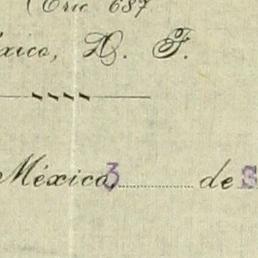 (Eric 687
xico, D. F.
México, 3 de S